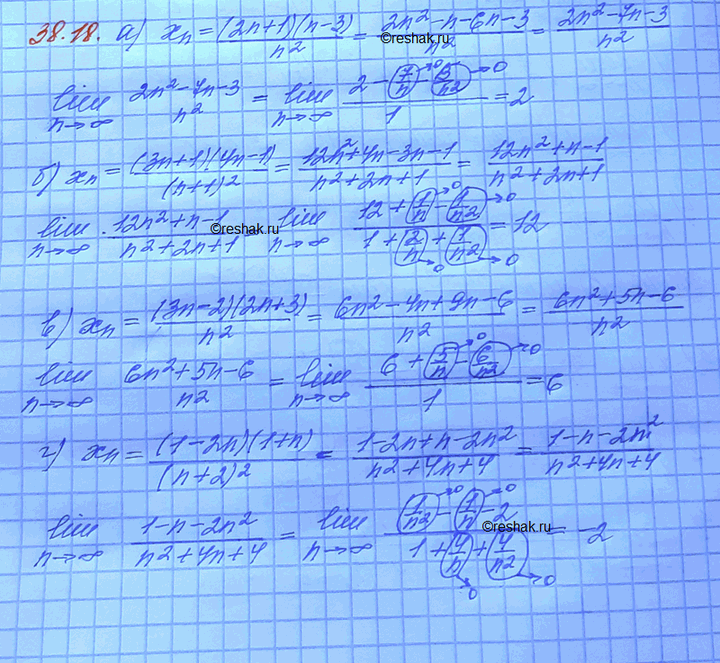 38.18. а) xₙ = (2n+1)(n-3)/n² = 2n²-n-6n-3/n² = 2n²-7n-3/n²
©reshak.ru
lim n→∞ 2n²-7n-3/n² = lim n→∞ 2 - 7/n→0 - 3/n²→0 / 1 = 2
б) xₙ = (3n+1)(4n-1)/(n+1)² = 12n²+4n-3n-1/n²+2n+1 = 12n²+n-1/n²+2n+1
lim n→∞ 12n²+n-1/n²+2n+1 = lim n→∞ 12 + 1/n→0 - 1/n²→0 / 1 + 2/n→0 + 1/n²→0 = 12
©reshak.ru
в) xₙ = (3n-2)(2n+3)/n² = 6n²-4n+9n-6/n² = 6n²+5n-6/n²
lim n→∞ 6n²+5n-6/n² = lim n→∞ 6 + 5/n→0 - 6/n²→0 / 1 = 6
г) xₙ = (1-2n)(1+n)/(n+2)² = 1-2n+n-2n²/n²+4n+4 = 1-n-2n²/n²+4n+4
lim n→∞ 1-n-2n²/n²+4n+4 = lim n→∞ 1/n²→0 - 1/n→0 - 2 / 1 + 4/n→0 + 4/n²→0 = -2
©reshak.ru